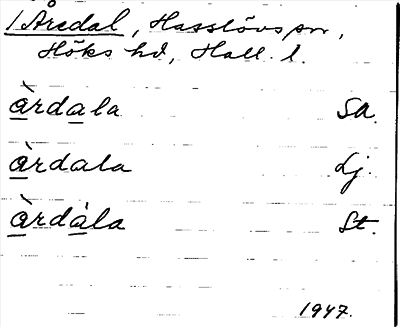 / Åredal, Hasslövs sn,
Höks hd, Hall. l.
àrdala Sa.
àrdala Lj.
àrdàla St.
1947.